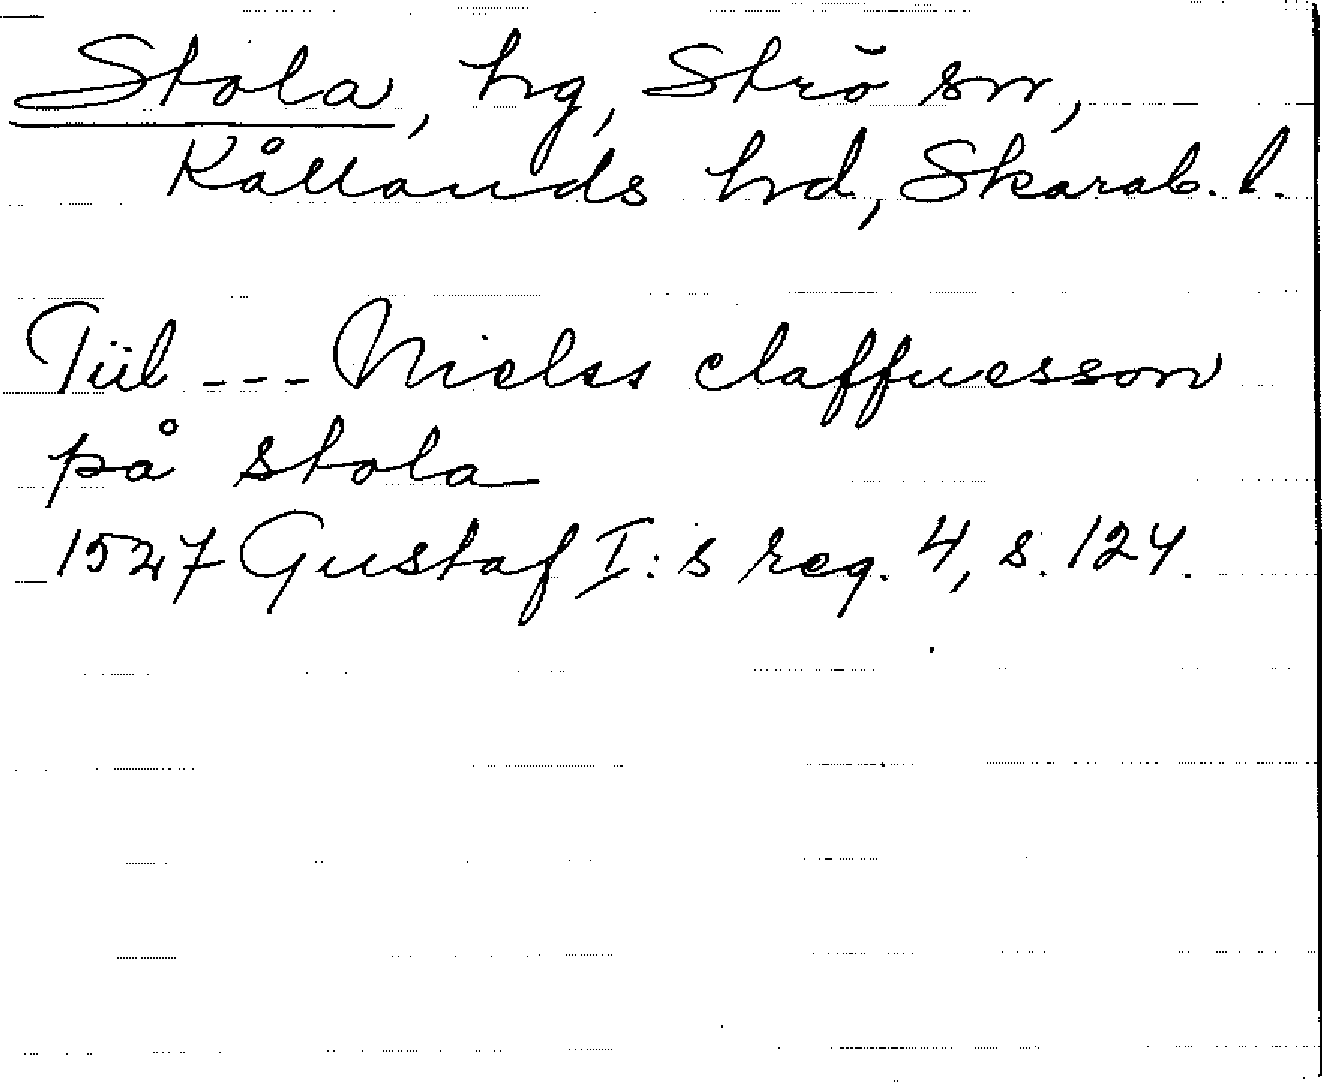 Stola, hg, Strö sn,
Kållands hd, Skarab. l.
Tiil --- Nielss claffuesson
på stola
1527 Gustaf I:s reg. 4, s. 124.